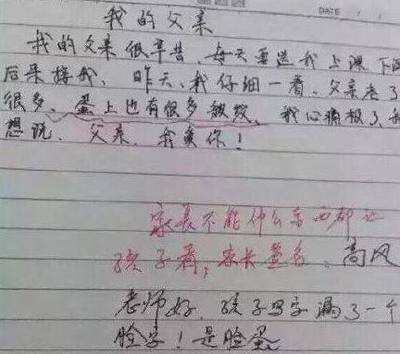 DATE
我的父亲
我的父亲很辛苦,每天要送我上课,下课
后来接我,昨天,我仔细一看,父亲老了
很多,蛋上也有很多皱纹,我心痛极了,我
想说,父亲,我爱你!
家长不能什么东西都让
孩子看,家长签名:高风
老师好,孩子写字漏了一个
脸字!是脸蛋